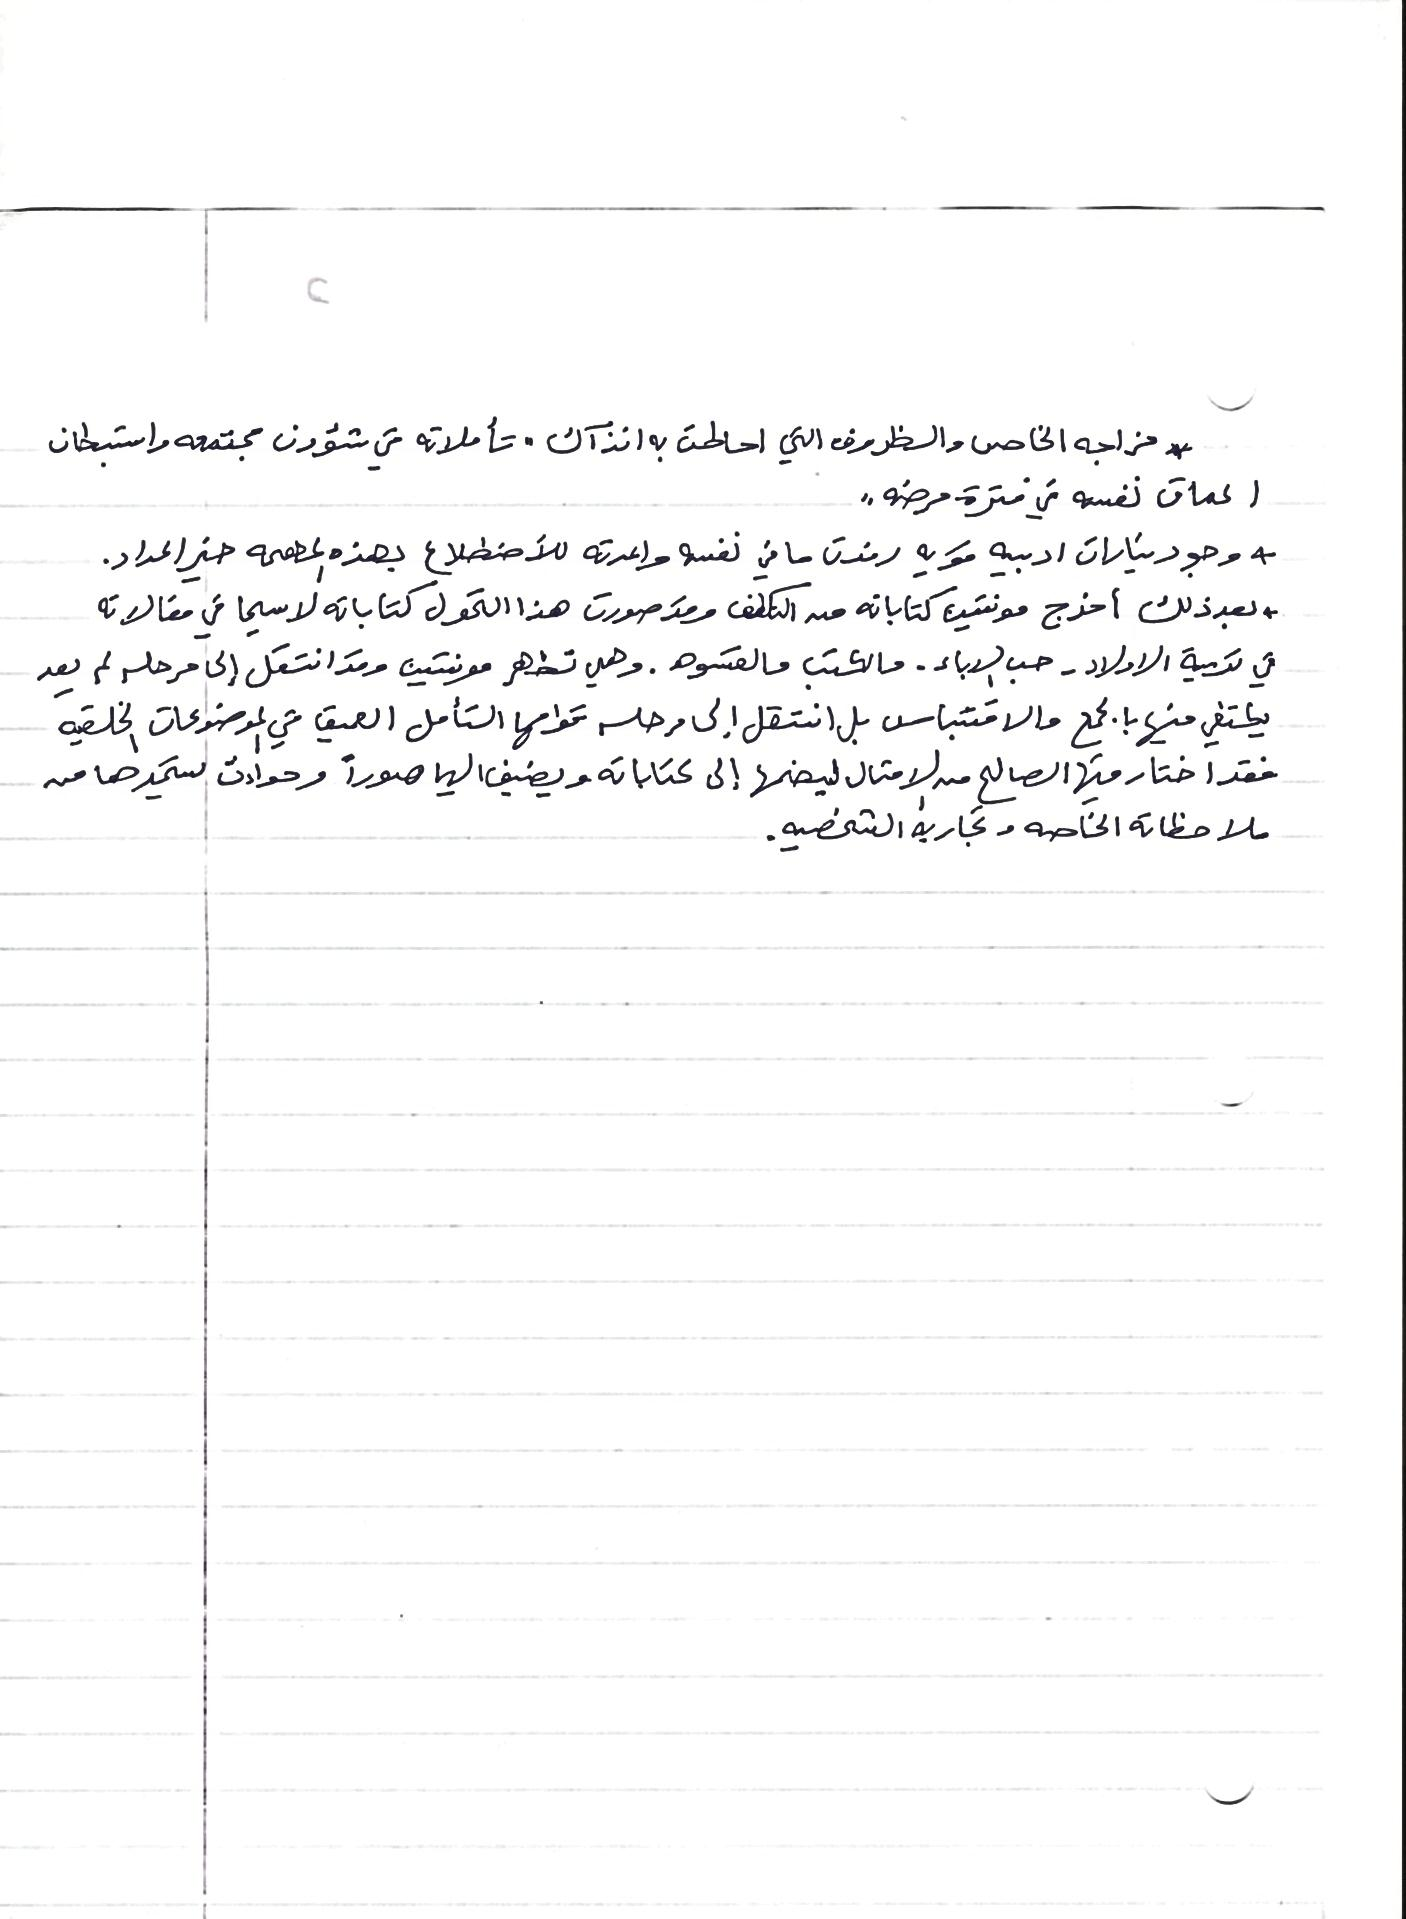 ٢
* مزاجه الخاص والظروف التي احاطت به انذآك " تأملاته في شؤون مجتمعه واستبطان
اعماق نفسه في فترة مرضه "
* وجود تيارات ادبيه قويه رفدت ما في نفسه واعدته للأضطلاع بهذه المهمه خير اعداد.
* بعد ذلك أخرج مونتين كتاباته من التكلف وقد صورت هذا التحول كتاباته لاسيما في مقالاته
في تربية الاولاد - حب الاباء - والكتب والقسوه . وهي تظهر مونتين وقد انتقل إلى مرحله لم يعد
يكتفي منها بالجمع والاقتباس بل انتقل إلى مرحله قوامها التأمل العميق في الموضوعات الخلقيه
فقد اختار منها الصالح من الامثال ليضمها إلى كتاباته ويضيف اليها صوراً وحوادث يستمدها من
ملاحظاته الخاصه وتجاربه الشخصيه .